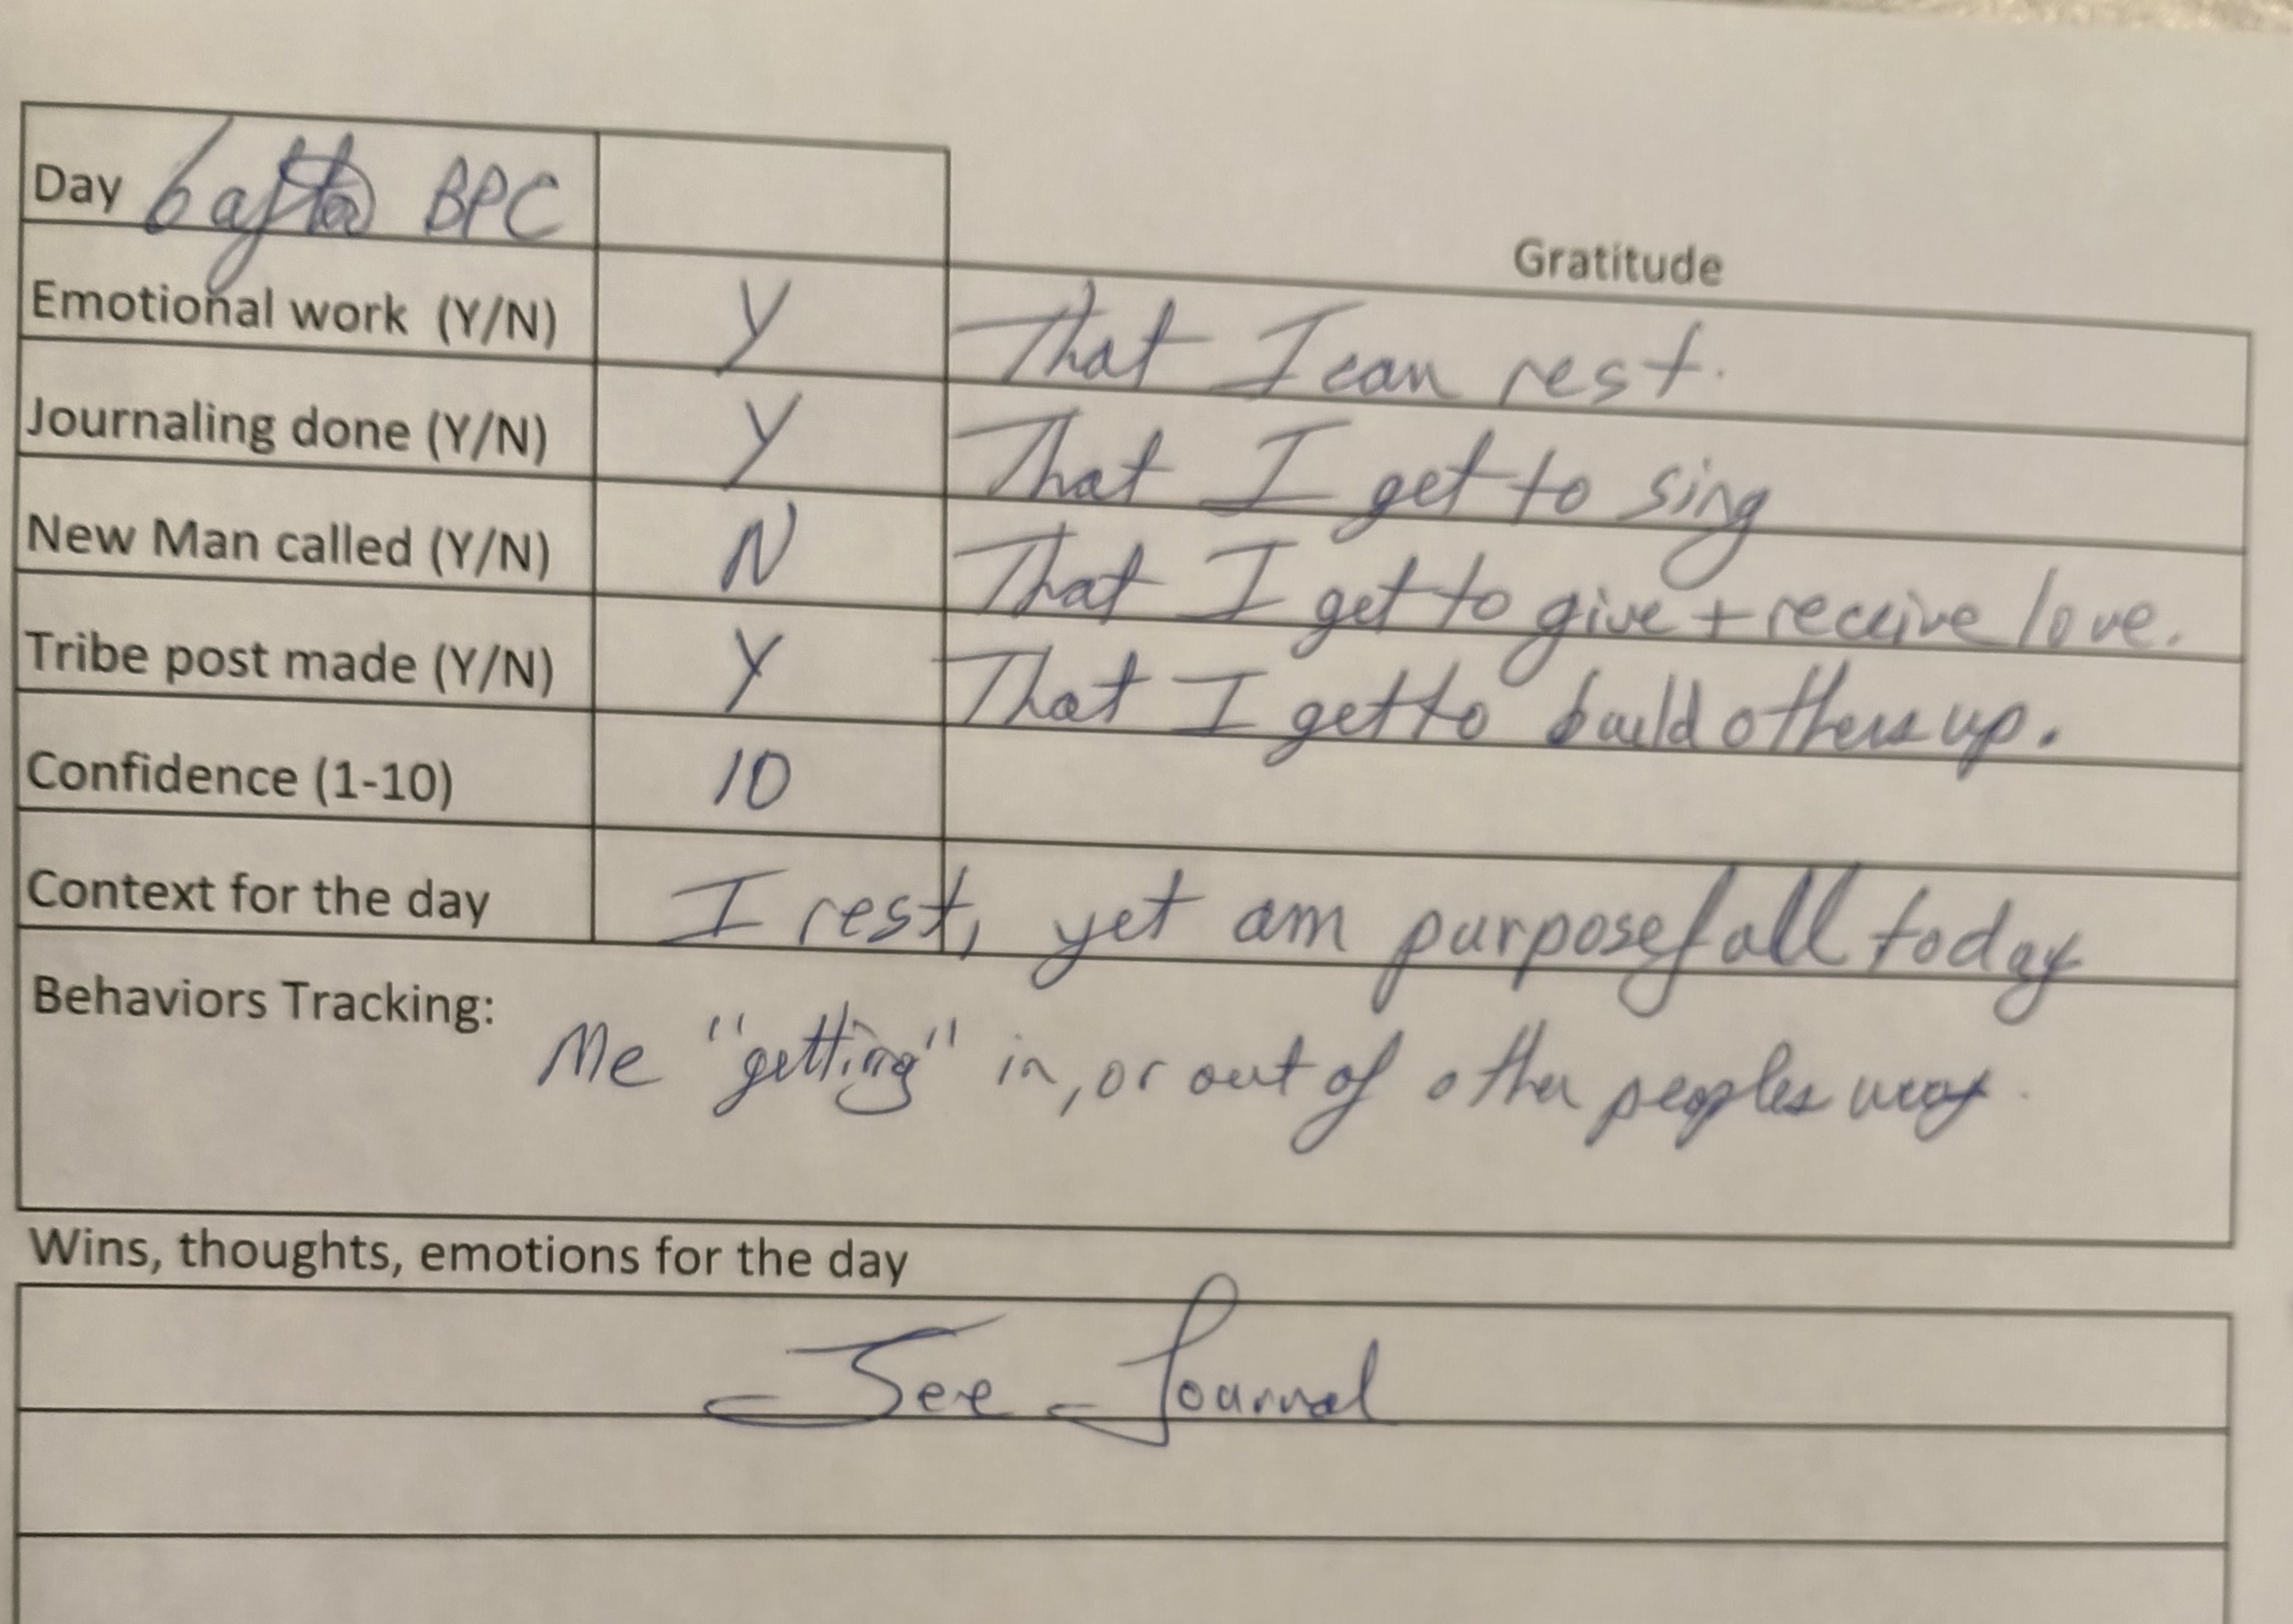 Day 6 after BPC
Gratitude
Emotional work (Y/N) Y That I can rest.
Journaling done (Y/N) Y That I get to sing
New Man called (Y/N) N That I get to give + receive love.
Tribe post made (Y/N) Y That I get to build others up.
Confidence (1-10) 10
Context for the day I rest, yet am purposefull today
Behaviors Tracking:
Me "getting" in, or out of other peoples way.
Wins, thoughts, emotions for the day
See Journal